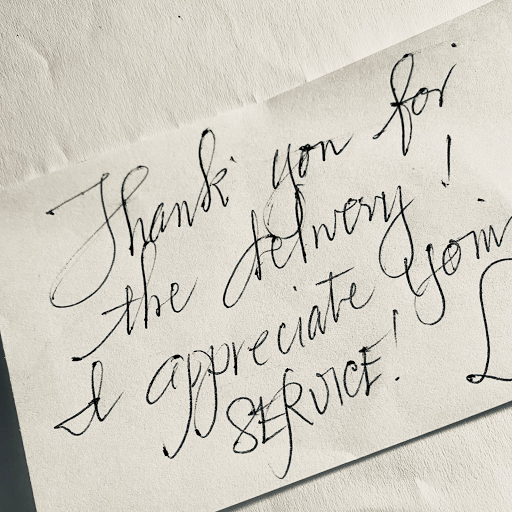 Thank you for
the delivery!
I appreciate your
SERVICE! L